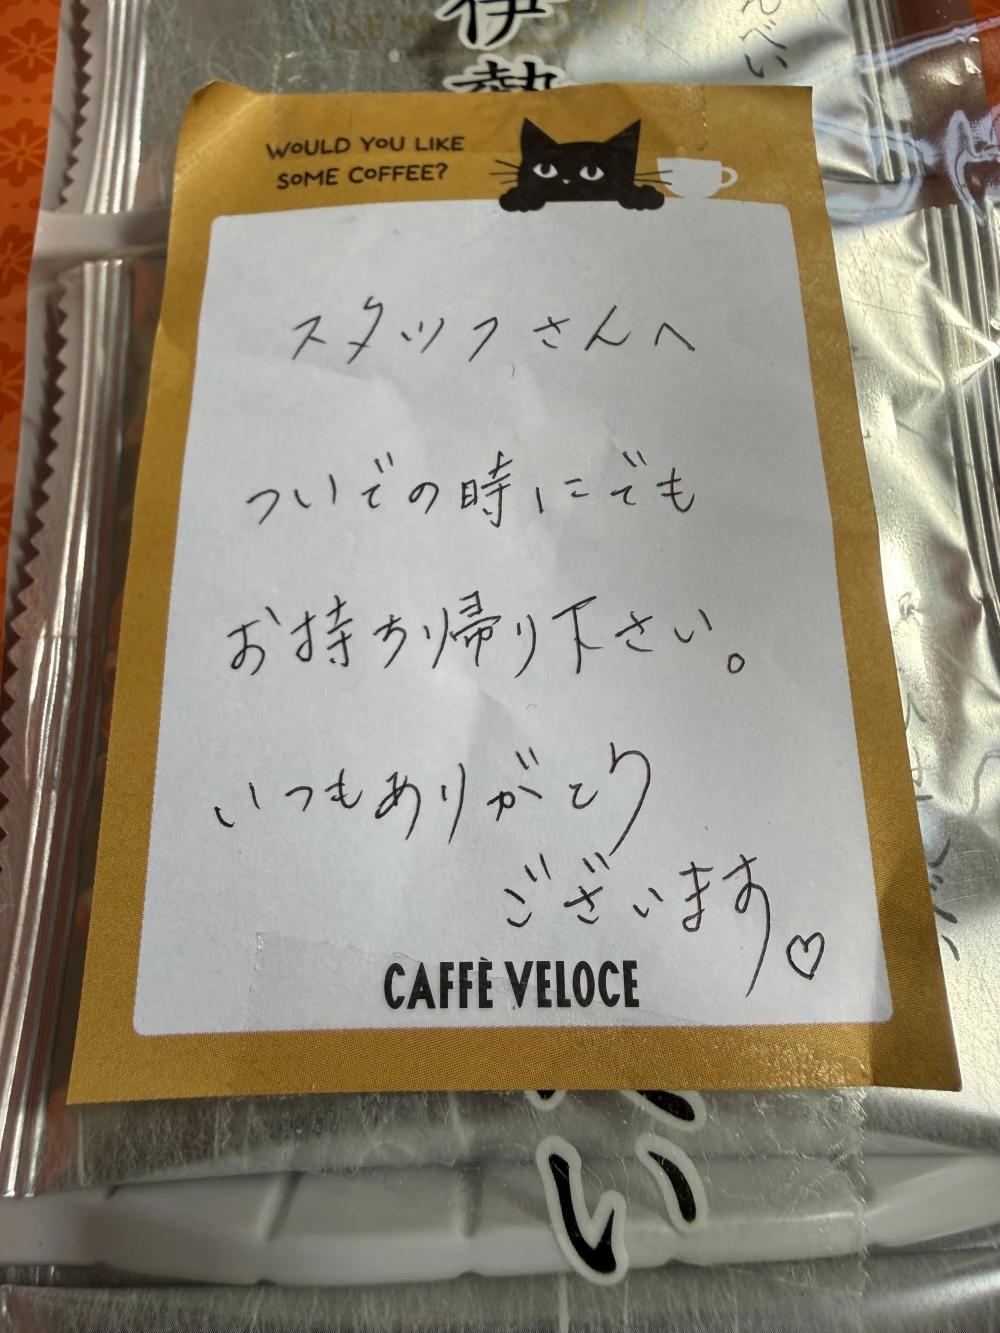 ISE
伊勢
んべい
WOULD YOU LIKE
SOME COFFEE?
スタッフさんへ
ついでの時にでも
お持ち帰り下さい。
いつもありがとう
ございます♡
CAFFÈ VELOCE
い